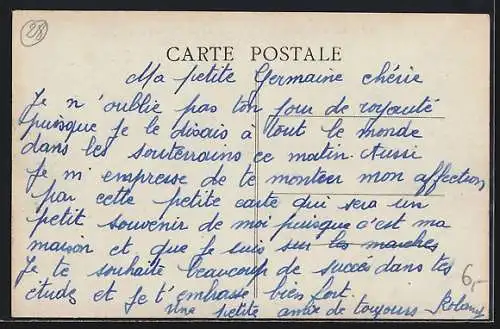 28
CARTE POSTALE
Ma petite Germaine chérie
Je n'oublie pas ton jour de royauté
puisque je le disais à tout le monde
dans les souterrains ce matin. Aussi
je m'empresse de te montrer mon affection
par cette petite carte qui sera un
petit souvenir de moi puisque c'est ma
maison et que je suis sur les marches
Je te souhaite beaucoup de succès dans tes
études et je t'embrasse bien fort.
Une petite amie de toujours
6,-